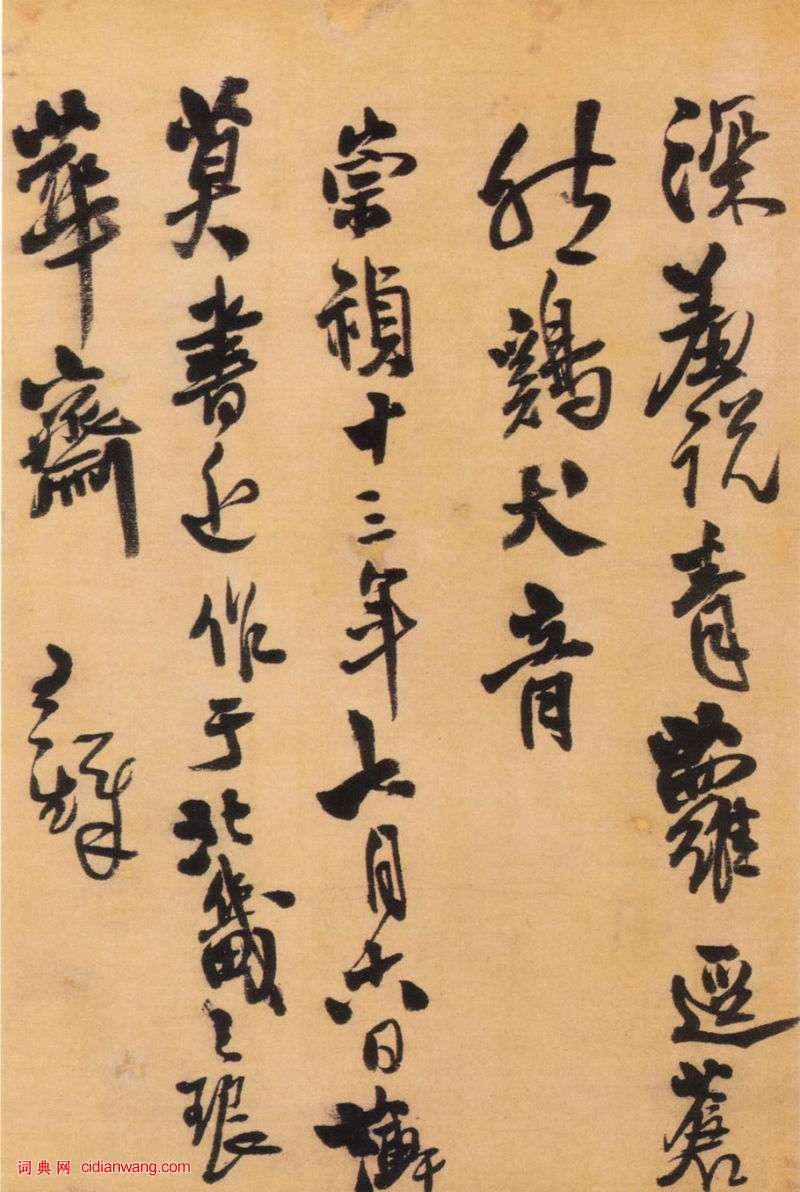 深羞說青蘿逕蒼
然鷄犬音
崇禎十三年七月六日
莫書近作于北畿之琅
華齋 王鐸
词典网 cidianwang.com